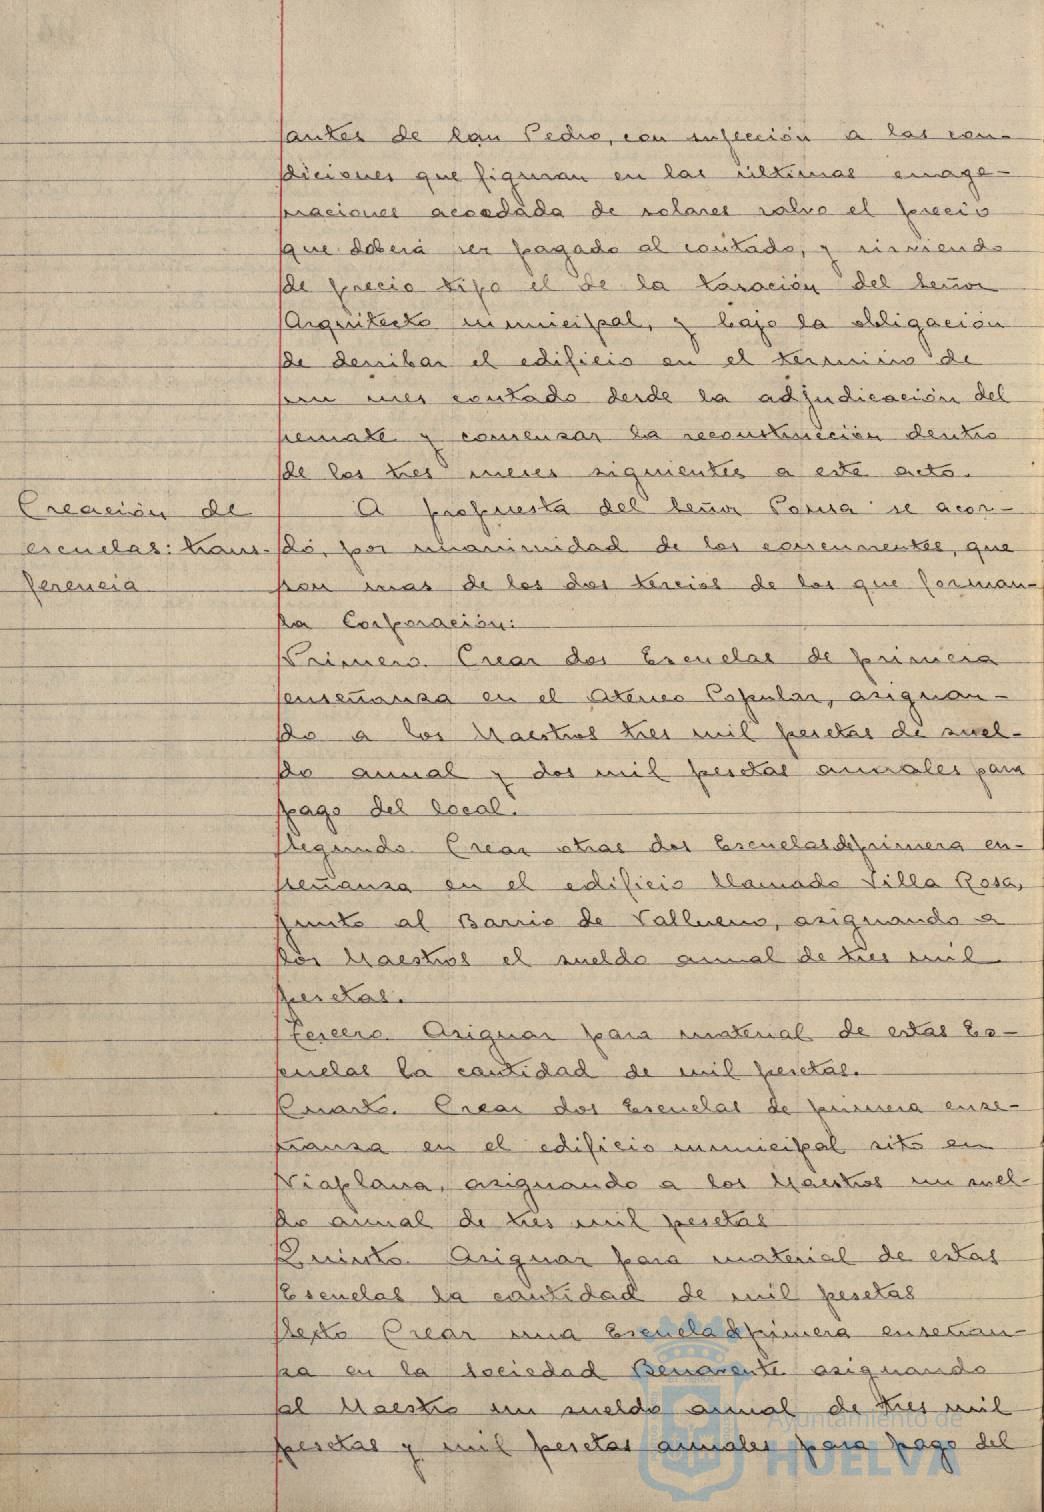 antes de San Pedro, con sujección a las con-
diciones que figuran en las últimas enage-
naciones acordada de solares salvo el precio
que deberá ser pagado al contado, y sirviendo
de precio tipo el de la tasación del Señor
Arquitecto municipal, y bajo la obligación
de derribar el edificio en el termino de
un mes contado desde la adjudicación del
remate y comenzar la reconstrucción dentro
de los tres meses siguientes a este acto.
Creación de
escuelas: trans-
ferencia
A propuesta del Señor Ponsa se acor-
dó, por unanimidad de los concurrentes, que
son mas de los dos tercios de los que forman
la Corporación:
Primero. Crear dos Escuelas de primera
enseñanza en el Ateneo Popular, asignan-
do a los Maestros tres mil pesetas de suel-
do anual y dos mil pesetas anuales para
pago del local.
Segundo. Crear otras dos Escuelas de primera en-
señanza en el edificio llamado Villa Rosa,
junto al Barrio de Vallueno, asignando a
los Maestros el sueldo anual de tres mil
pesetas.
Tercero. Asignar para material de estas Es-
cuelas la cantidad de mil pesetas.
Cuarto. Crear dos Escuelas de primera ense-
ñanza en el edificio municipal sito en
Viaplana, asignando a los Maestros un suel-
do anual de tres mil pesetas
Quinto. Asignar para material de estas
Escuelas la cantidad de mil pesetas
Sexto Crear una Escuela de primera enseñan-
za en la Sociedad Benavente asignando
al Maestro un sueldo anual de tres mil
pesetas y mil pesetas anuales para pago del
Ayuntamiento de
HUELVA